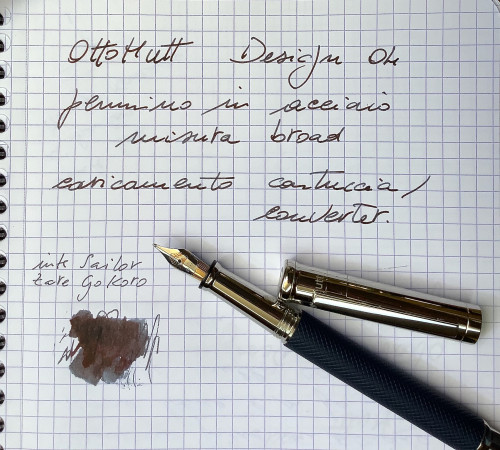 OttoHutt Design 04
pennino in acciaio
misura broad
caricamento cartuccia/
converter.
ink Sailor
Zare Gokoro